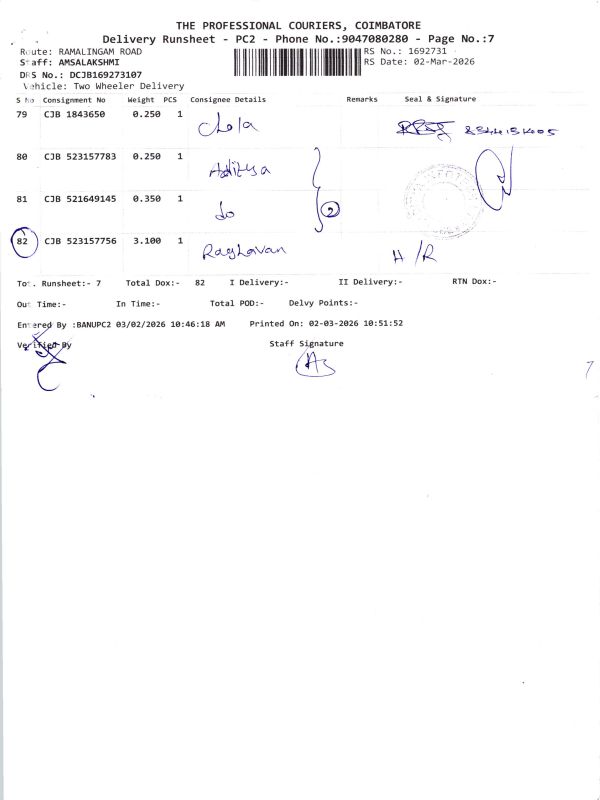 THE PROFESSIONAL COURIERS, COIMBATORE
Delivery Runsheet - PC2 - Phone No.:9047080280 - Page No.:7
Route: RAMALINGAM ROAD RS No.: 1692731
Staff: AMSALAKSHMI RS Date: 02-Mar-2026
DRS No.: DCJB169273107
Vehicle: Two Wheeler Delivery
S No Consignment No Weight PCS Consignee Details Remarks Seal & Signature
79 CJB 1843650 0.250 1 Chola
80 CJB 523157783 0.250 1 Aditya
81 CJB 521649145 0.350 1 do 2
82 CJB 523157756 3.100 1 Raghavan H/R
Tot. Runsheet:- 7 Total Dox:- 82 I Delivery:- II Delivery:- RTN Dox:-
Out Time:- In Time:- Total POD:- Delvy Points:-
Entered By :BANUPC2 03/02/2026 10:46:18 AM Printed On: 02-03-2026 10:51:52
Verified By Staff Signature
7